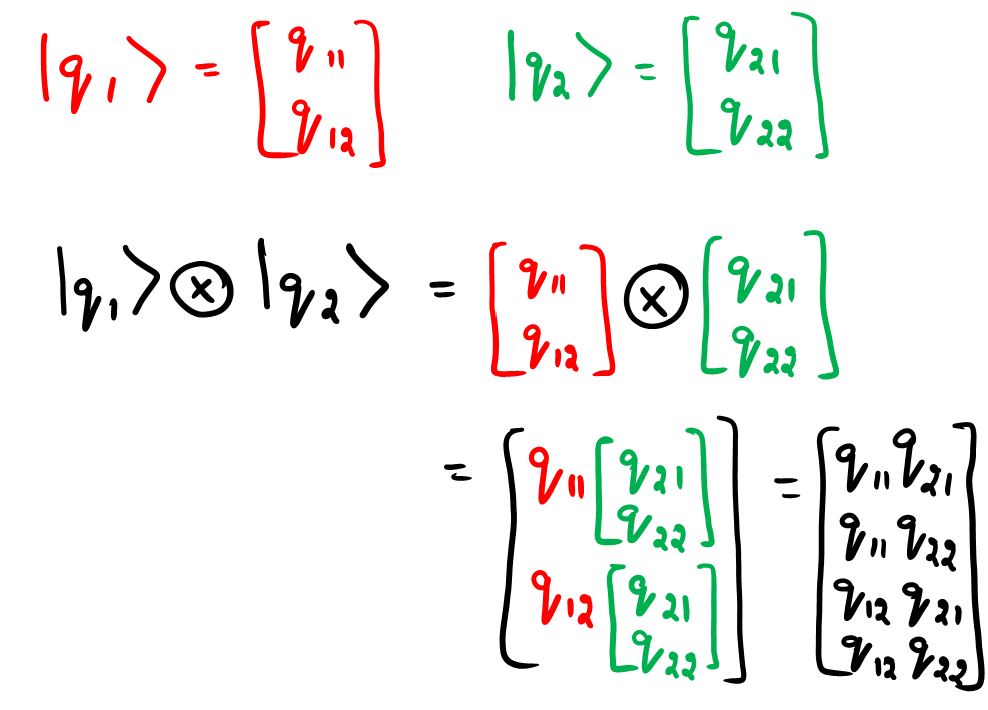 |q₁⟩ = [q₁₁ q₁₂] |q₂⟩ = [q₂₁ q₂₂]
|q₁⟩ ⊗ |q₂⟩ = [q₁₁ q₁₂] ⊗ [q₂₁ q₂₂]
= [q₁₁ [q₂₁ q₂₂] q₁₂ [q₂₁ q₂₂]] = [q₁₁q₂₁ q₁₁q₂₂ q₁₂q₂₁ q₁₂q₂₂]